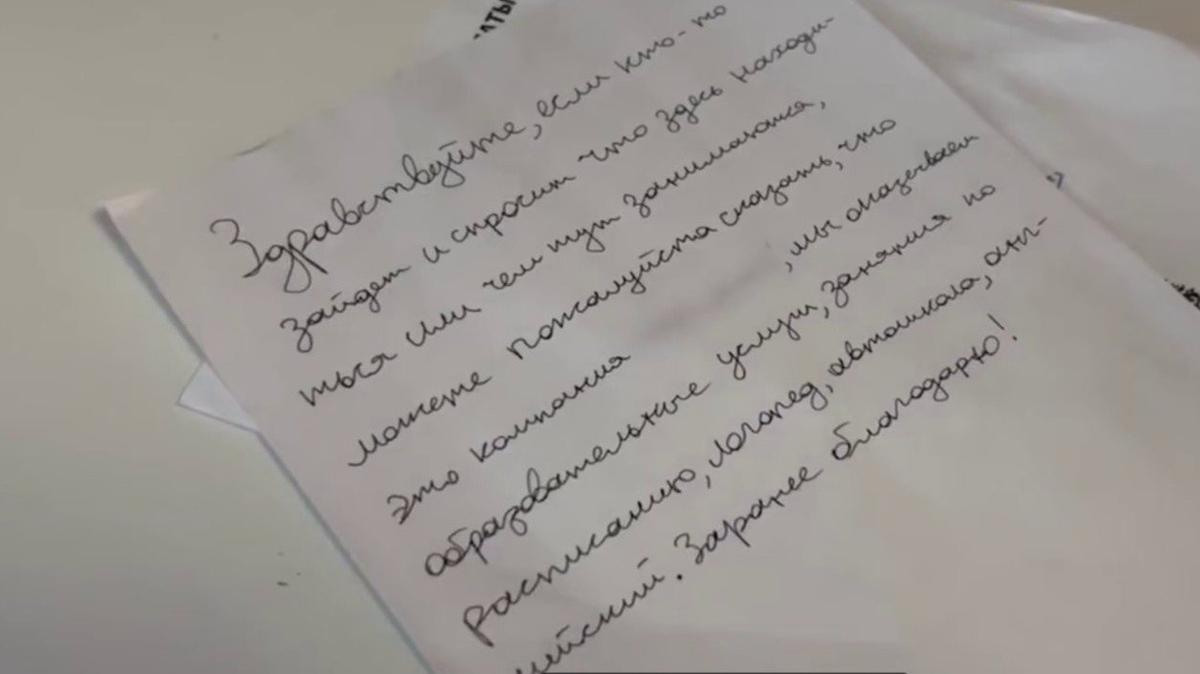 Здравствуйте, если кто-то
зайдет и спросит что здесь находи-
ться или чем тут занимаются,
можете пожалуйста сказать, что
это компания , мы оказываем
образовательные услуги, занятия по
расписанию, логопед, автошкола, анг-
лийский. Заранее благодарю!